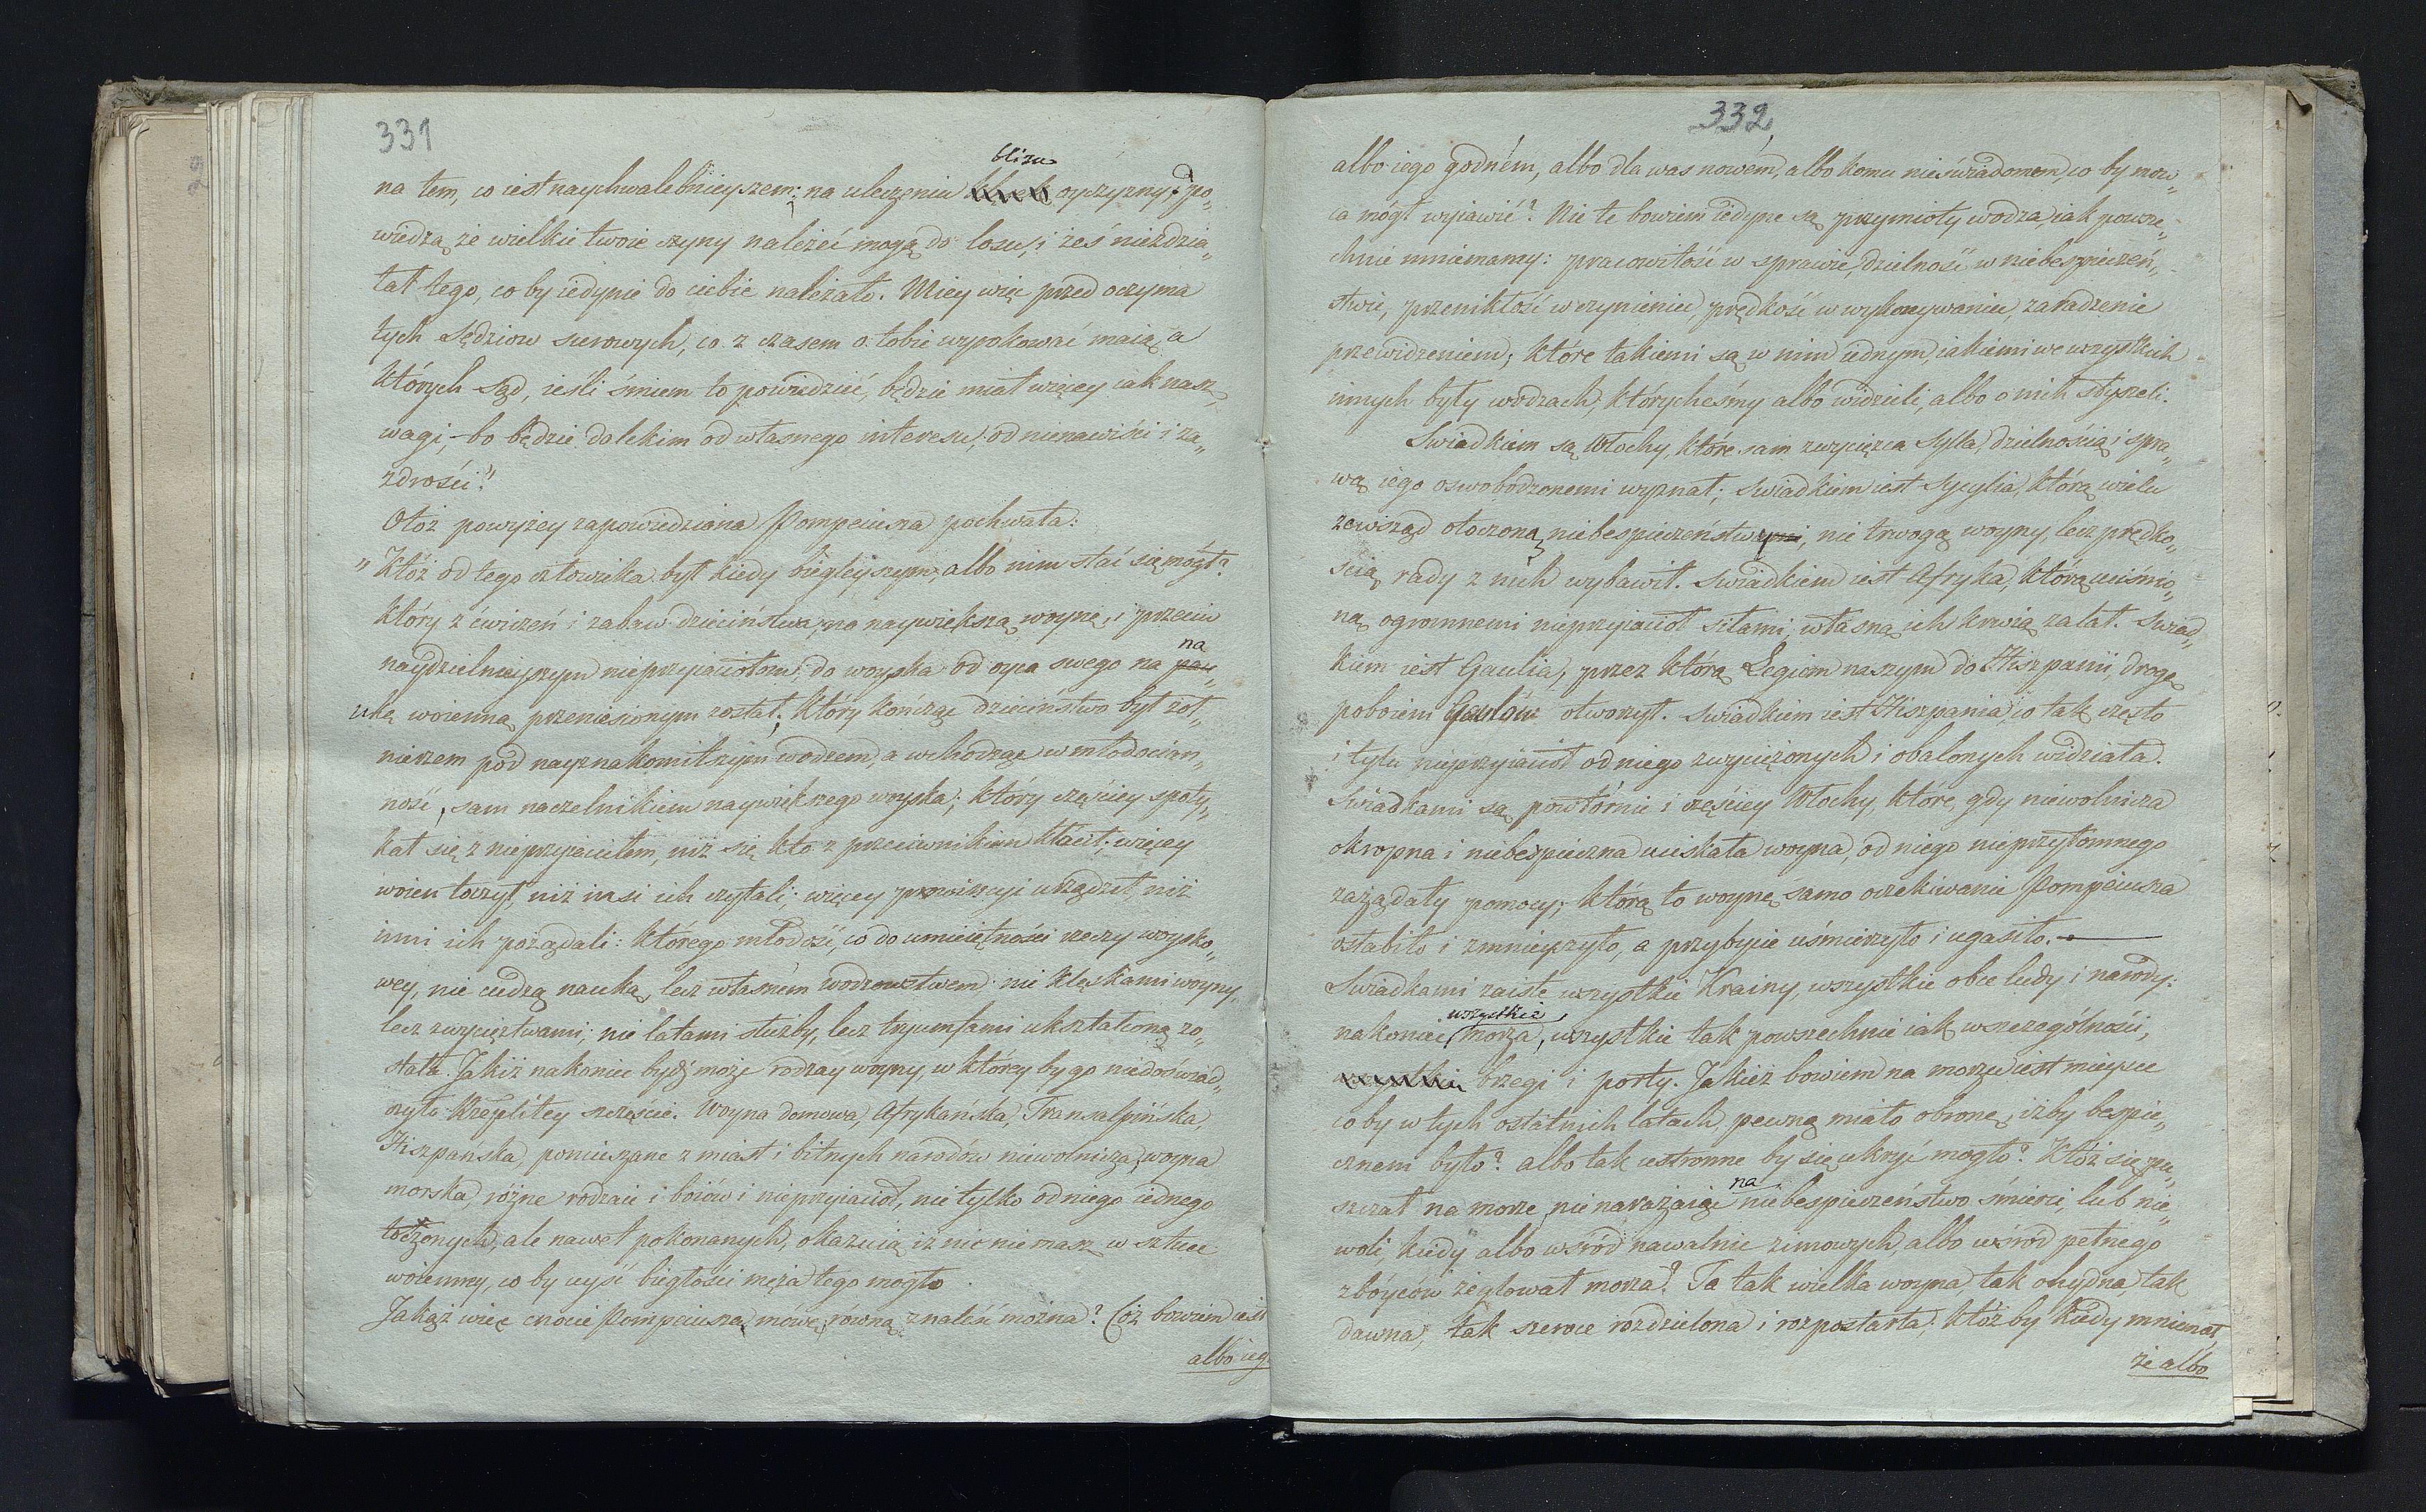 331
blizn
na tem, co iest naychwalebnieyszem: na uleczeniu oyczyzny? Po„
wiedzą że wielkie twoie czyny należeć mogą do losu, i żeś niezdzia„
łał tego, co by iedynie do ciebie należało. Miey więc przed oczyma
tych Sędziow surowych, co z czasem o tobie wyrokować maią, a
których sąd, ieśli śmiem to powiedzieć, będzie miał więcey iak nasz,
wagi, bo będzie dalekim od własnego interesu, od nienawiści i za„
zdrości."
Otóż powyżey zapowiedziana Pompeiusza pochwała:
„Któż od tego człowieka był kiedy biegleyszym, albo nim stać się mógł?
który z ćwiczeń i zabaw dzieciństwa, na naywiększą woynę, i przeciw
naydzielnieyszym nieprzyiaciołom, do woyska od oyca swego na
na
ukę woienną przeniesionym został; który kończąc dzieciństwo był żoł„
nierzem pod nayznakomitszym wodzem, a wchodząc w młodocian„
ność, sam naczelnikiem naywiększego woyska; który częściey spoty„
kał się z nieprzyiacielem, niż się kto z przeciwnikiem kłócił; więcey
woien toczył, niż inni ich czytali; więcey prowincyi urządził, niż
inni ich pożądali: którego młodość, co do umieiętności rzeczy woysko„
wey, nie cudzą nauką, lecz własnem wodzowstwem; nie klęskami woyny,
lecz zwycięztwami; nie latami służby, lecz tryumfami ukształconą zo„
stała. Jakiż nakoniec bydź może rodzay woyny, w którey by go niedoświad„
czyło Rzeplitey szczęście. Woyna domowa, Afrykańska, Transalpińska,
Hiszpańska, pomieszane z miast i bitnych narodów niewolnicza, woyna
morska, różne rodzaie i boiów i nieprzyiaciół, nie tylko od niego iednego
toczonych, ale nawet pokonanych, okazuią iż nic nie masz w sztuce
woienney, co by uyść biegłości męża tego mogło.
Jakąż więc cnocie Pompeiusza, mowę, równą znaleźć można? Cóż bowiem iest
albo ieg
332
albo iego godném, albo dla was nowém, albo komu nieświadomem, co by mow„
ca mógł wyiawić? Nie te bowiem iedyne są przymioty wodza, iak powsze„
chnie mniemamy: pracowitość w sprawie, dzielność w niebespieczeń„
stwie, przenikłość w czynieniu, prędkość w wykonywaniu, zaradzenie
przewidzeniem; które takiemi są w nim iednym, iakiemi we wszystkich
innych były wodzach, którycheśmy albo widzieli, albo o nich słyszeli.
Swiadkiem są Włochy, które sam zwycięzca Sylla, dzielnością i spra„
wą iego oswobodzonemi wyznał; swiadkiem iest Sycylia, którą wielu
zewsząd otoczoną niebespieczeństwy, nie trwogą woyny, lecz prędko„
ścią rady z nich wybawił. Swiadkiem iest Afryka, którą uciśnio„
ną ogromnemi nieprzyiaciół siłami, własną ich krwią zalał. Swiad„
kiem iest Gaulia, przez którą Legiom naszym do Hiszpanii, drogę
poboiem Gaulów otworzył. Swiadkiem iest Hiszpania, co tak często
i tylu nieprzyiaciół od niego zwyciężonych i obalonych widziała.
Swiadkami są powtórnie i częściey Włochy, które, gdy niewolnicza
okropna i niebespieczna uciskała woyna, od niego nieprzytomnego
zażądały pomocy; którą to woynę samo oczekiwanie Pompeiusza
osłabiło i zmnieyszyło, a przybycie uśmierzyło i ugasiło.—
Swiadkami zaiste wszystkie Krainy, wszystkie obce ludy i narody:
wszystkie
nakoniec morza, wszystkie tak powszechnie iak w szczególności,
brzegi i porty. Jakież bowiem na morzu iest mieysce
co by w tych ostatnich latach, pewną miało obronę, iżby bespie„
cznem było? albo tak ustronne by się ukryć mogło? Któż się pu„
na
szczał na morze, nienarażaiąc niebespieczeństwo śmierci, lub nie„
woli, kiedy albo wśród nawalnic zimowych, albo wśród pełnego
zbóyców żeglował morza? Ta tak wielka woyna, tak ohydna, tak
dawna, tak szeroce rozdzielona i rozpostarta, któż by kiedy mniemał,
że albo